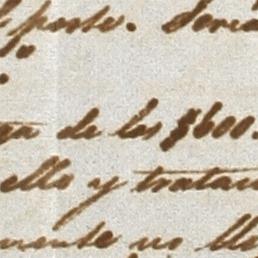 porte. Seria
de los $600.
ello y tratan
mente no lle